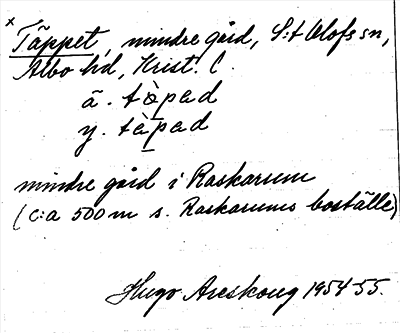 x Täppet, mindre gård, S:t Olofs sn,
Albo hd, Krist. l.
ä. tòpad
y. tàpad
mindre gård i Raskarum
(c:a 500 m s. Raskarums boställe)
Hugo Areskoug 1954-55.